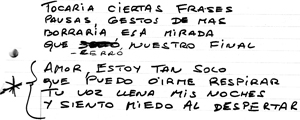 TOCARIA CIERTAS FRASES
PAUSAS, GESTOS DE MAS
BORRARIA ESA MIRADA
QUE CERRÓ, NUESTRO FINAL
AMOR, ESTOY TAN SOLO
QUE PUEDO OIRME RESPIRAR
TU VOZ LLENA MIS NOCHES
Y SIENTO MIEDO AL DESPERTAR